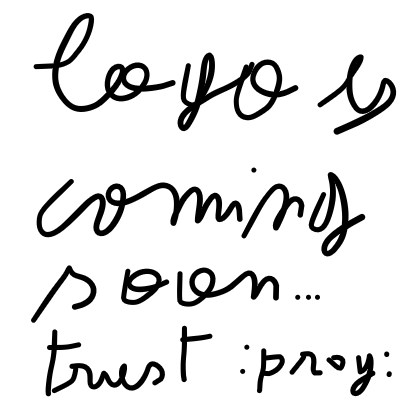 logo is
coming
soon...
trust :pray: